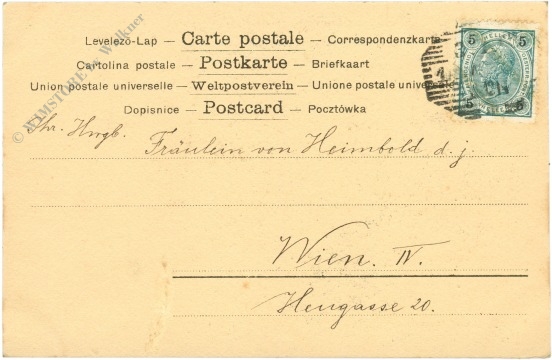 Levelező-Lap — Carte postale — Correspondenzkarte
Cartolina postale — Postkarte — Briefkaart
Union postale universelle — Weltpostverein — Unione postale universale
Dopisnice — Postcard — Pocztówka
Fräulein von Heimbold d. j.
Wien. IV.
Heugasse 20.
5 5
5 5